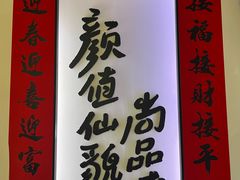 接福接财接平
颜值仙貌
尚品
迎春迎喜迎富